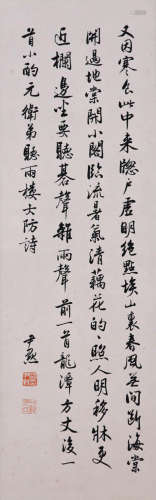 又因寒食此中来窗戶虛明絕點埃山裏春風無間斷海棠
開過地棠開小閣臨流暑氣清藕花的的照人明移牀更
近欄邊坐要聽棊聲雜雨聲前一首龍潭方丈後一
首小酌元衛弟聽雨樓士防詩
尹默